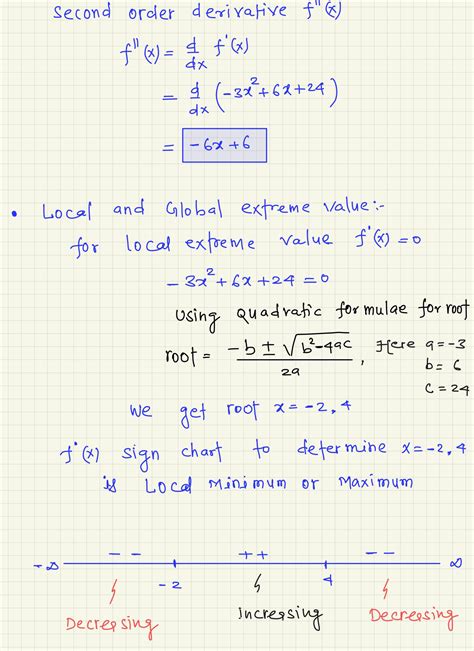 Second order derivative f"(x)
f"(x) = d/dx f'(x)
= d/dx (-3x²+6x+24)
= -6x+6
• Local and Global extreme value:-
for local extreme value f'(x) = 0
-3x²+6x+24 = 0
Using Quadratic formulae for root
root = (-b ± √(b²-4ac))/2a, Here a=-3
b= 6
c = 24
we get root x = -2, 4
f'(x) sign chart to determine x=-2,4
is Local Minimum or Maximum
-∞ -- -2 ++ 4 -- ∞
Decreasing Increasing Decreasing